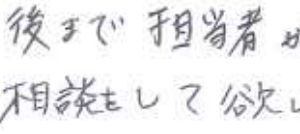 後まで担当者が
相談をして欲し